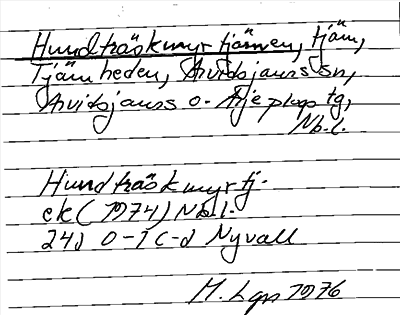 Hundträskmyrtjärnen, tjärn,
Tjärnheden, Arvidsjaurs sn,
Arvidsjaurs o. Arjeplogs tg,
Nb.l.
Hundträskmyrtj.
ek (1974) Nb.l.
24J 0-1 c-d Nyvall
M. Lgn 1976